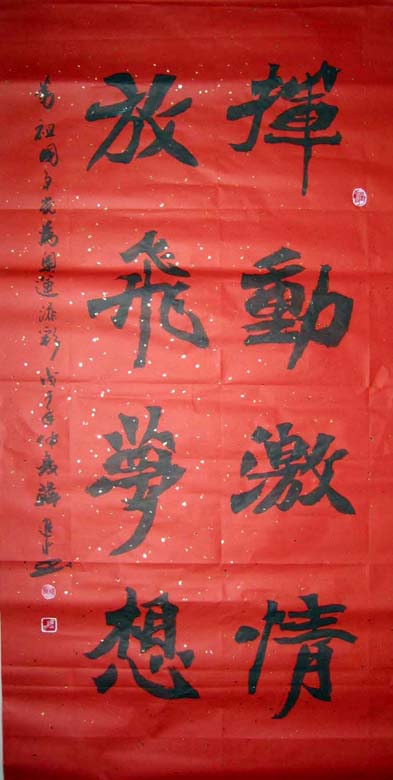 揮動激情
放飛夢想
為祖國争光為奥運添彩 戊子年仲